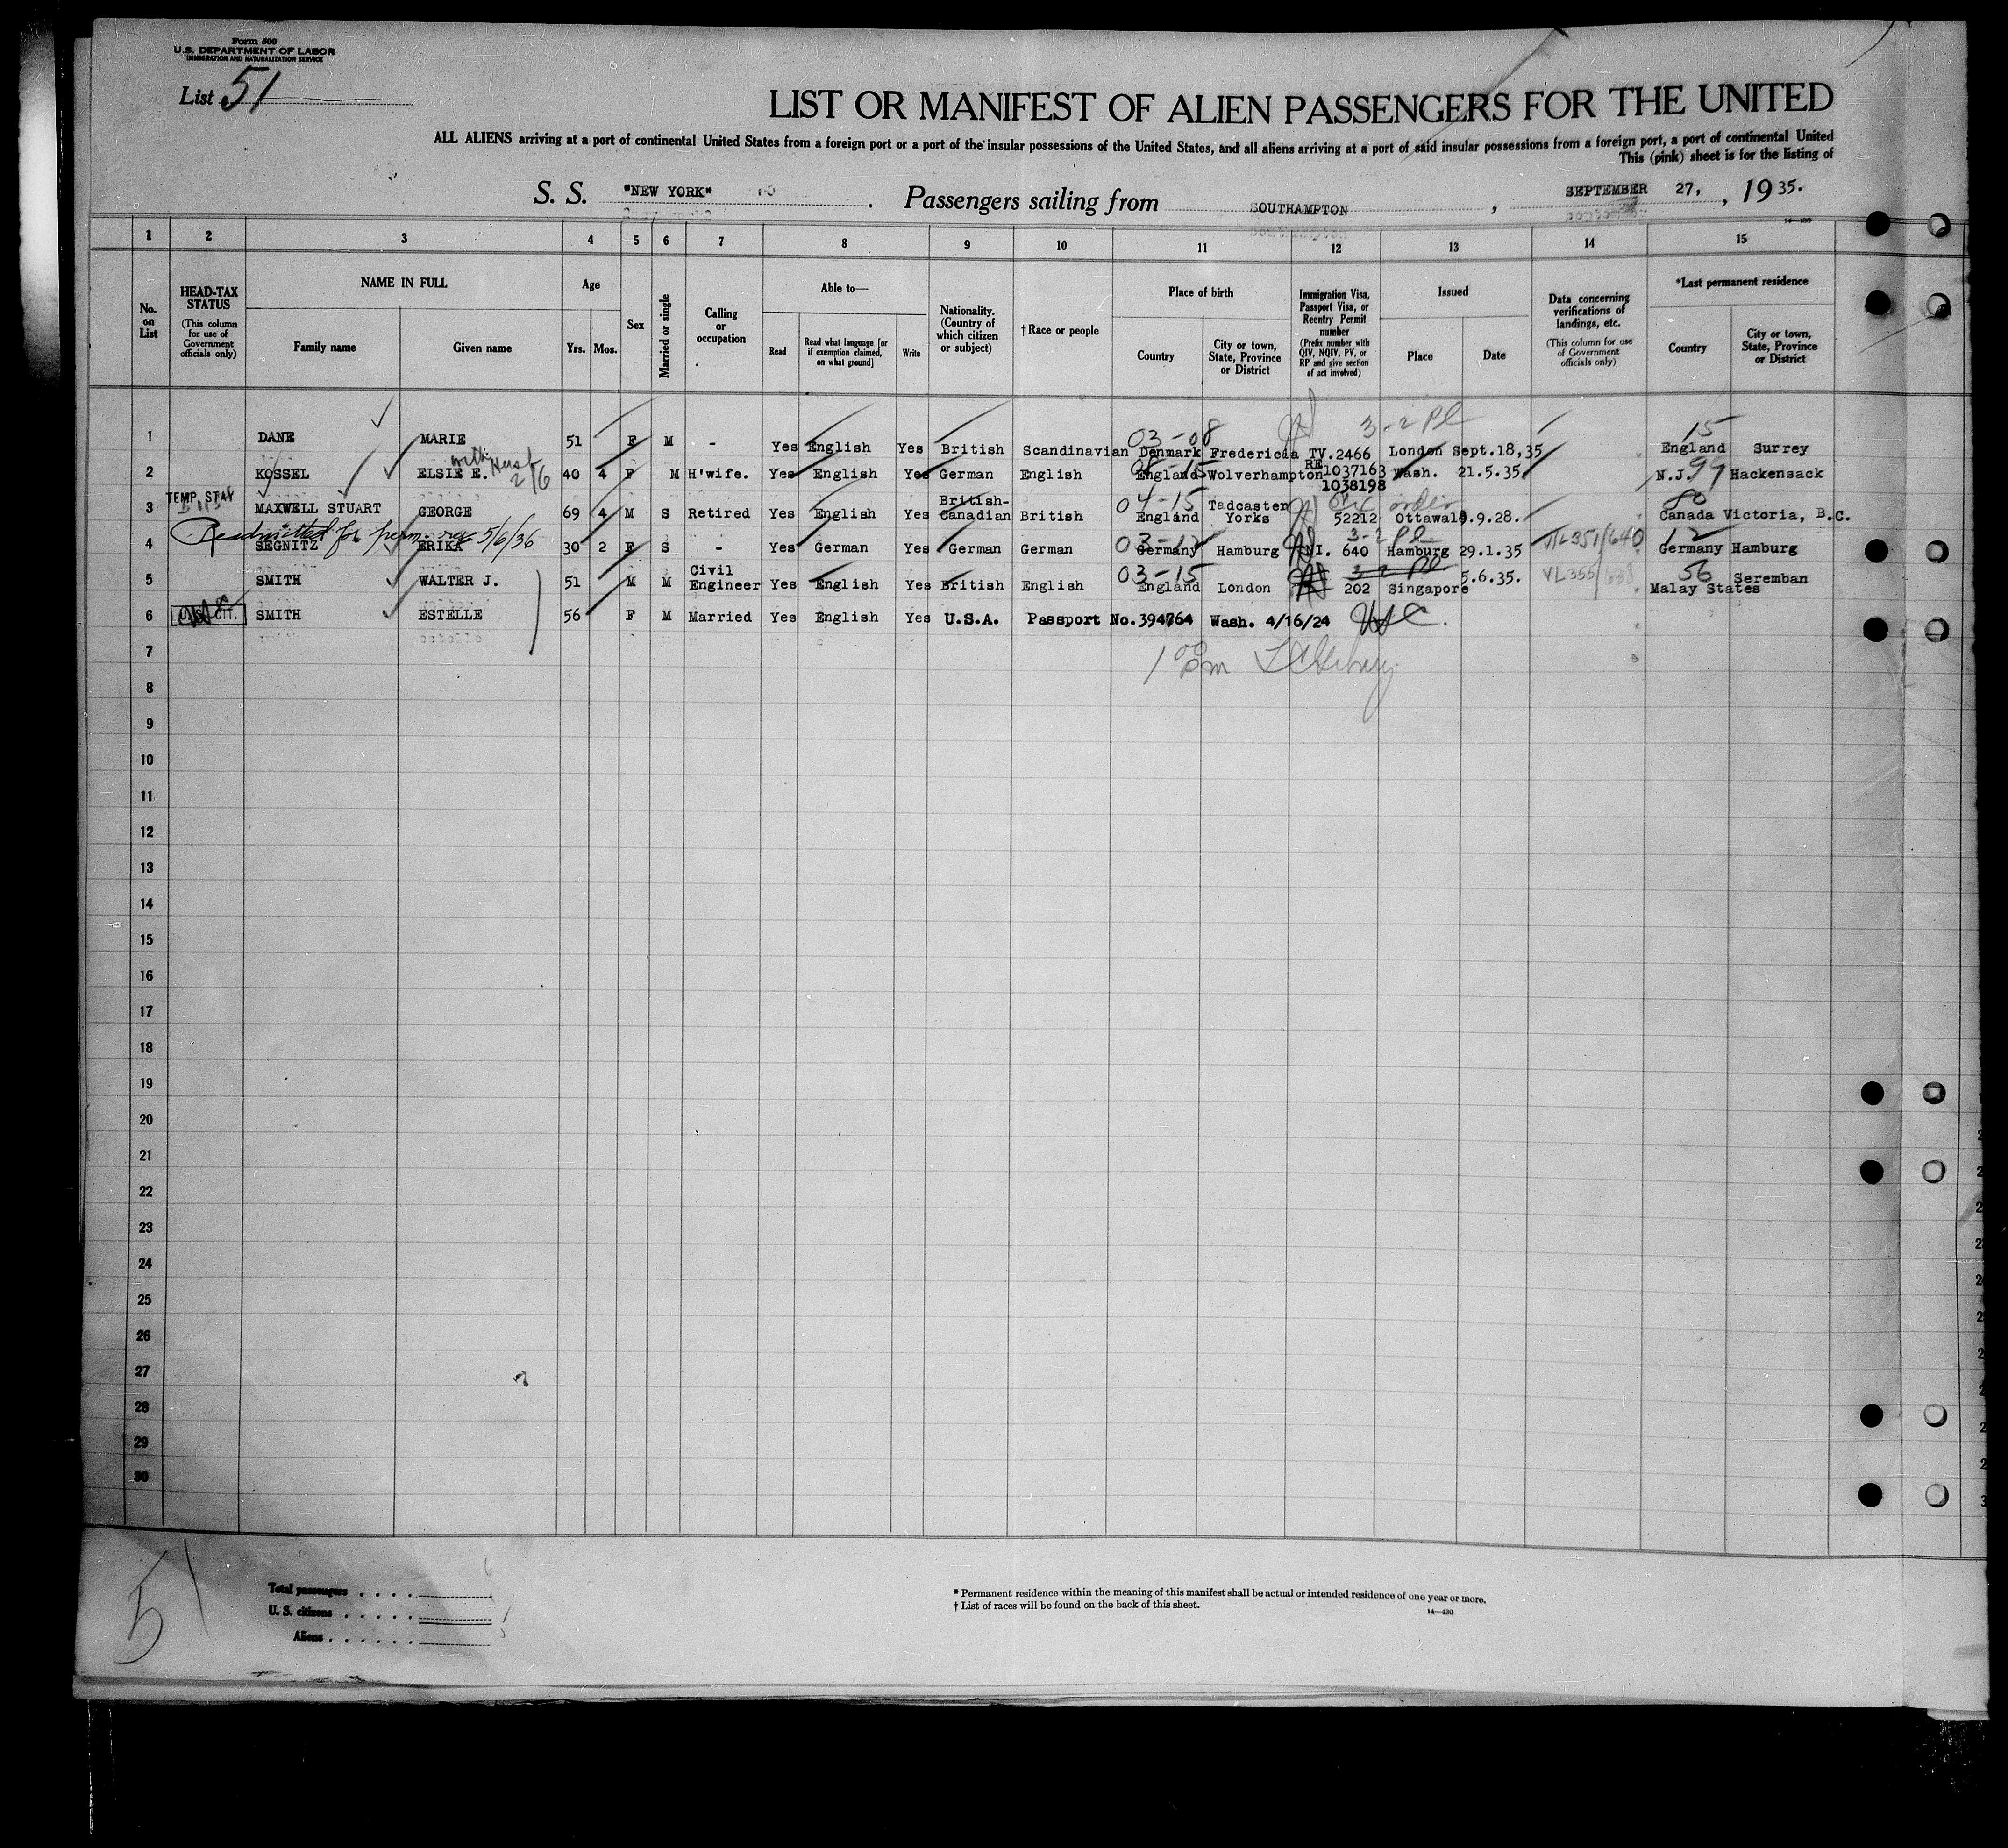 Form 500
U.S. DEPARTMENT OF LABOR
IMMIGRATION AND NATURALIZATION SERVICE
List 51
LIST OR MANIFEST OF ALIEN PASSENGERS FOR THE UNITED
ALL ALIENS arriving at a port of continental United States from a foreign port or a port of the insular possessions of the United States, and all aliens arriving at a port of said insular possessions from a foreign port, a port of continental United
This (pink) sheet is for the listing of
S. S. "NEW YORK" . Passengers sailing from SOUTHAMPTON , SEPTEMBER 27, , 19 35.
1 2 3 4 5 6 7 8 9 10 11 12 13 14 15
No. on List
HEAD-TAX STATUS (This column for use of Government officials only)
NAME IN FULL Family name Given name
Age Yrs. Mos.
Sex
Married or single
Calling or occupation
Able to— Read Read what language [or if exemption claimed, on what ground] Write
Nationality. (Country of which citizen or subject)
† Race or people
Place of birth Country City or town, State, Province or District
Immigration Visa, Passport Visa, or Reentry Permit number (Prefix number with QIV, NQIV, PV, or RP and give section of act involved)
Issued Place Date
Data concerning verifications of landings, etc. (This column for use of Government officials only)
*Last permanent residence Country City or town, State, Province or District
03-08 3-2 PL 15
1 DANE MARIE 51 F M - Yes English Yes British Scandinavian Denmark Fredericia TV.2466 London Sept.18,35 England Surrey
with Husb 2/6
2 KOSSEL ELSIE E. 40 4 F M H'wife. Yes English Yes German English 08-15 England Wolverhampton RE 1037163 1038198 Wash. 21.5.35 N.J. 99 Hackensack
TEMP. STAY
3 MAXWELL STUART GEORGE 69 4 M S Retired Yes English Yes British-Canadian British 04-15 England Tadcaster Yorks 52212 Ottawa 19.9.28. 80 Canada Victoria, B.C.
Readmitted for perm. res 5/6/36
4 SEGNITZ ERIKA 30 2 F S - Yes German Yes German German Germany Hamburg 3-2 PL NI. 640 Hamburg 29.1.35 VL351/640 12 Germany Hamburg
5 SMITH WALTER J. 51 M M Civil Engineer Yes English Yes British English 03-15 England London 3-2 PL 202 Singapore 5.6.35. VL355/638 56 Malay States Seremban
6 U.S. CIT. SMITH ESTELLE 56 F M Married Yes English Yes U.S.A. Passport No.394764 Wash. 4/16/24 USC.
7
8
9
10
11
12
13
14
15
16
17
18
19
20
21
22
23
24
25
26
27
28
29
30
51
Total passengers . . . . 6
U. S. citizens . . . . . 1
Aliens . . . . . . 5
* Permanent residence within the meaning of this manifest shall be actual or intended residence of one year or more.
† List of races will be found on the back of this sheet.
14—430